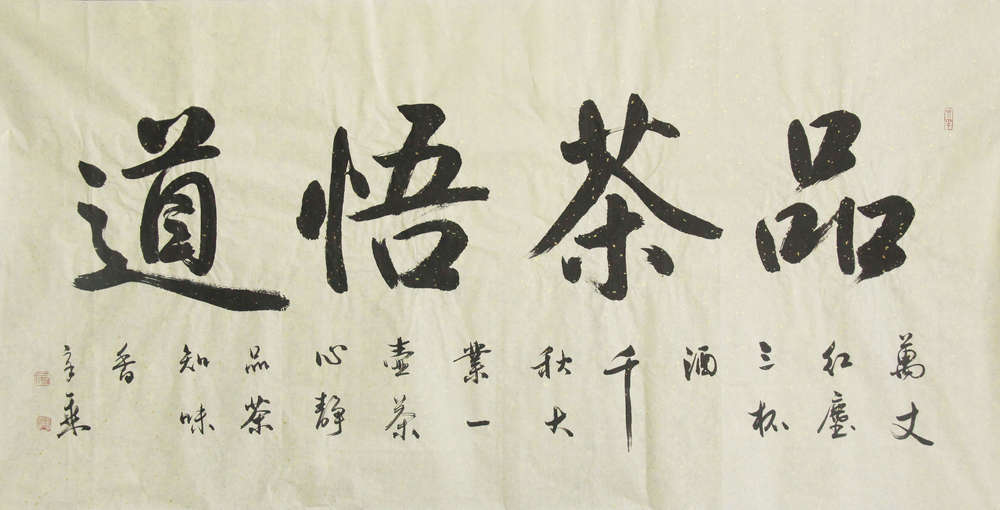 品茶悟道
萬丈
红塵
三杯
酒
千
秋大
業一
壺茶
心静
品茶
知味
香